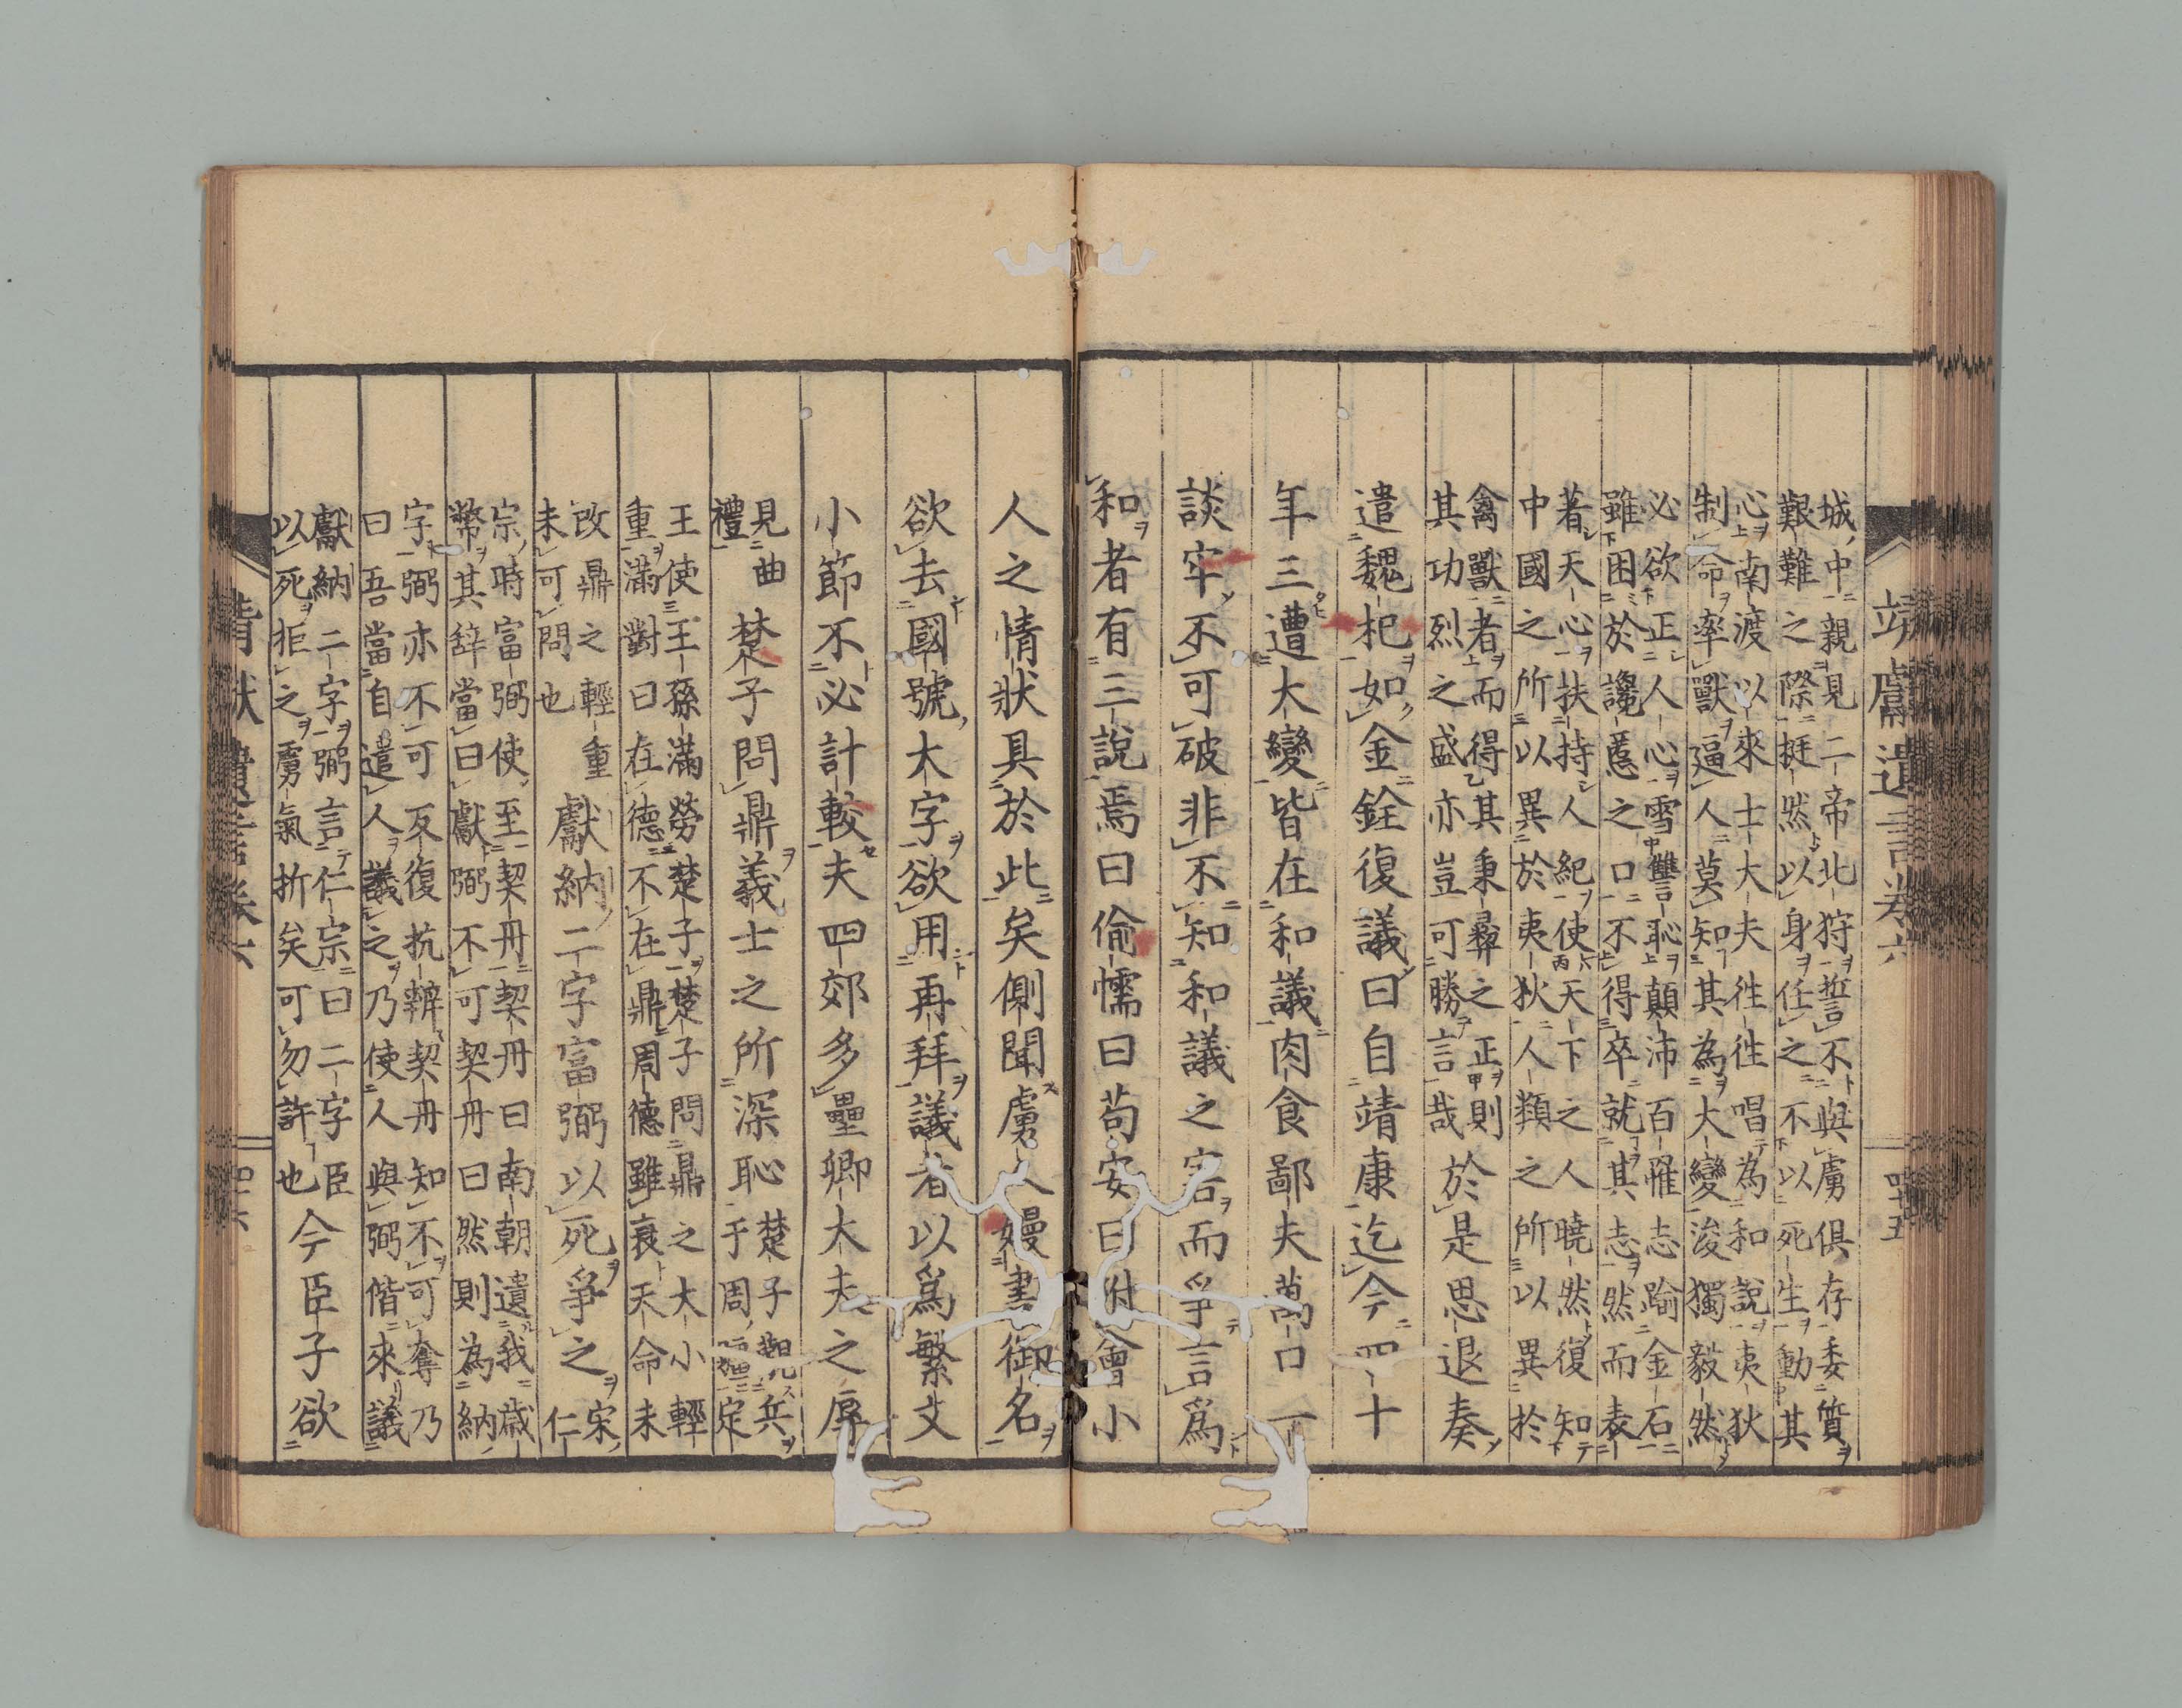 靖獻遺言卷六
四十五
城中親見二帝北狩誓不與虜俱存委質
艱難之際挺然以身任之不以死生動其
心南渡以來士大夫往往唱為和說夷狄
制命率獸逼人莫知其為大變浚獨毅然
必欲正人心雪讐恥顛沛百罹志踰金石
雖困於讒慝之口不得卒就其志然而表
著天心扶持人紀使天下之人曉然復知
中國之所以異於夷狄人類之所以異於
禽獸者而得其秉彝之正則
其功烈之盛亦豈可勝言哉
於是思退奏
遣魏杞如金銓復議曰自靖康迄今四十
年三遭大變皆在和議肉食鄙夫萬口一
談牢不可破非不知和議之害而爭言爲
和者有三說焉曰偷懦曰苟安曰附會小
人之情狀具於此矣側聞虜人嫚書御名
欲去國號大字欲用再拜議者以爲繁文
小節不必計較夫四郊多壘卿大夫之辱
見曲
禮
楚子問鼎義士之所深恥
楚子觀兵
于周疆定
王使王孫滿勞楚子楚子問鼎之大小輕
重滿對曰在德不在鼎周德雖衰天命未
改鼎之輕重
未可問也
獻納二字富弼以死爭之
宋
仁
宗時富弼使至契丹契丹曰南朝遺我歲
幣其辭當曰獻弼不可契丹曰然則為納
字弼亦不可反復抗辯契丹知不可奪乃
曰吾當自遣人議之乃使人與弼偕來議
獻納二字弼言仁宗曰二字臣
以死拒之虜氣折矣可勿許也
今臣子欲
靖獻遺言卷六
四十六